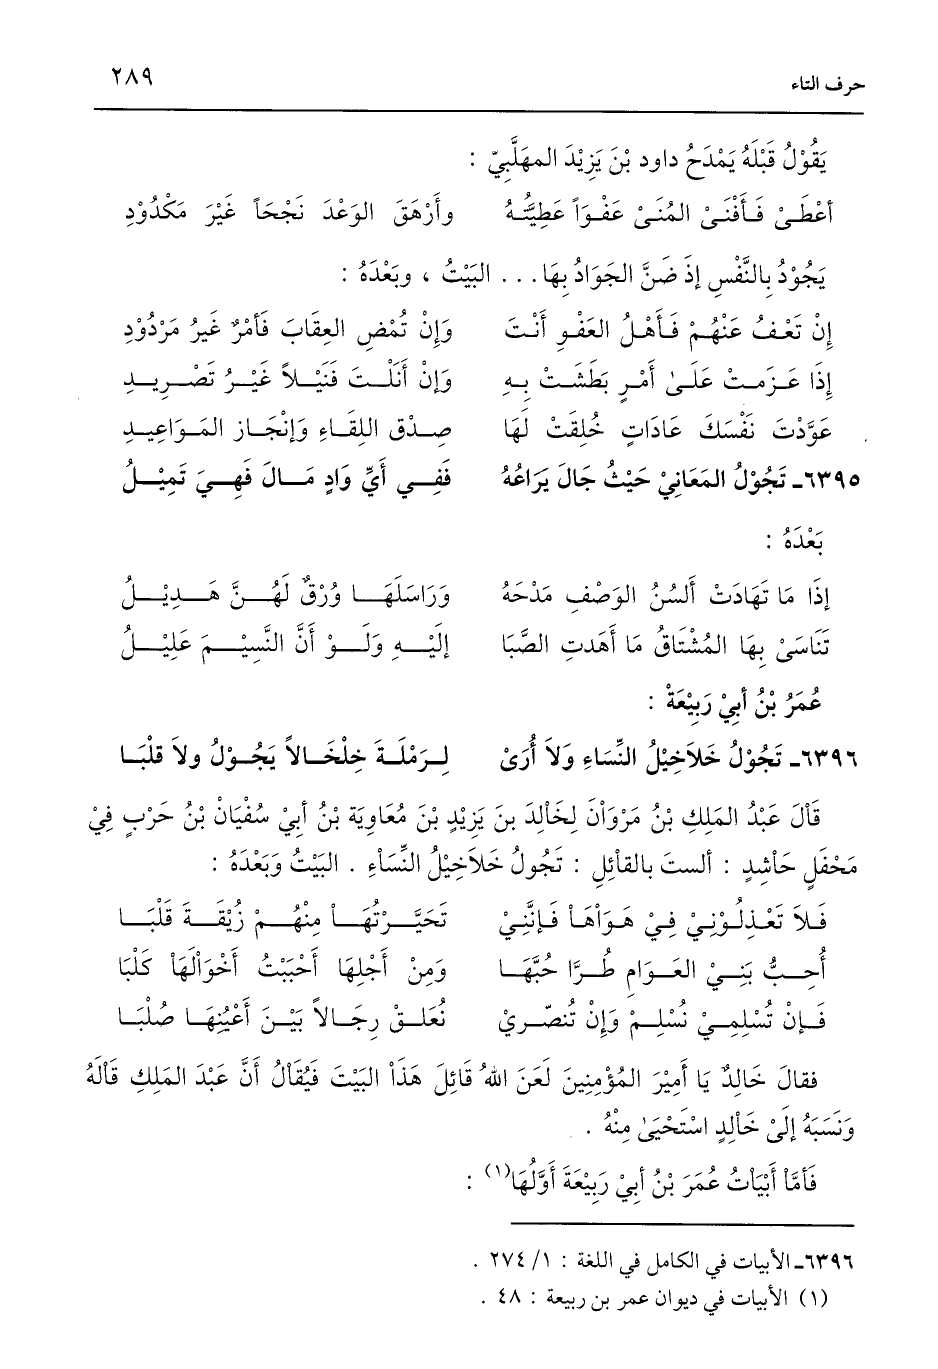 حرف التاء ٢٨٩
يَقُوْلُ قَبْلَهُ يَمْدَحُ داود بْنَ يَزِيْدَ المهَلَّبِيّ :
أعْطَىْ فَأَفْنَىْ المُنَىْ عَفْوَاً عَطِيَّتُهُ وأَرْهَقَ الوَعْدَ نَجْحَاً غَيْرَ مَكْدُوْدِ
يَجُوْدُ بِالنَّفْسِ إِذْ ضَنَّ الجَوَادُ بِهَا... البَيْتُ ، وبَعْدَهُ :
إِنْ تَعْفُ عَنْهُمْ فَأَهْلُ العَفْوِ أَنْتَ وَإِنْ تُمْضِ العِقَابَ فَأَمْرٌ غَيرُ مَرْدُوْدِ
إِذَا عَزَمتَ عَلَىْ أَمْرٍ بَطَشْتَ بِهِ وَإِنْ أَنَلْتَ فَنَيْلاً غَيْرُ تَصْرِيدِ
عَوَّدْتَ نَفْسَكَ عَادَاتٍ خُلِقَتْ لَهَا صِدْق اللِقَاءِ وَإِنْجَاز المَوَاعِيدِ
٦٣٩٥ـ تَجُوْلُ المَعَانِيْ حَيْثُ جَالَ يَرَاعُهُ فَفِي أَيِّ وَادٍ مَالَ فَهِيَ تَمِيْلُ
بَعْدَهُ :
إِذَا مَا تَهَادَتْ أَلسُنُ الوَصْفِ مَدْحَهُ وَرَاسَلَهَا وُرْقٌ لَهُنَّ هَدِيْلُ
تَنَاسَىْ بِهَا المُشْتَاقُ مَا أَهَدتِ الصَّبَا إِلَيْهِ وَلَوْ أَنَّ النَّسِيْمَ عَلِيْلُ
عُمَرُ بْنُ أَبِيْ رَبِيْعَةْ :
٦٣٩٦ـ تَجُوْلُ خَلاَخِيْلُ النِّسَاءِ وَلاَ أُرَىْ لِرَمْلَةَ خِلْخَالاً يَجُوْلُ ولاَ قلْبَا
قَاْلَ عَبْدُ المَلِكِ بْنُ مَرْوَاْنَ لِخَالِدَ بنَ يَزِيْدٍ بْنَ مُعَاوِيَة بْنُ أَبِيْ سُفْيَانْ بْنُ حَرْبٍ فِيْ
مَحْفَلٍ حَاْشِدٍ : ألستَ بالقاْئِلِ : تَجُولُ خَلاَخِيْلُ النِّسَاْءِ . البَيْتُ وَبَعْدَهُ :
فَلاَ تَعْذِلُوْنِيْ فِيْ هَوَاْهَاْ فَإِنَّنِيْ تَخَيَّرْتُهَاْ مِنْهُمْ زُبَيْرِيَّةً قَلْبَا
أُحِبُّ بَنِيْ العَوَام طُرَّا حُبِّهَا وَمِنْ أَجْلِهَا أَحْبَبْتُ أَخْوَالَهَا كَلْبَا
فَإِنْ تُسْلِمِيْ نُسْلِمْ وَإِنْ تُنصّرِيْ نُعَلق رِجَالاً بَيْنَ أَعْيُنِهَا صُلْبَا
فقالَ خَالِدٌ يَا أَمِيْرَ المُؤْمِنِينَ لَعَنَ اللهُ قَائِلَ هَذَاْ البَيْتَ فَيُقَاْلُ أَنَّ عَبْدَ المَلِكِ قاْلَهُ
وَنَسَبَهُ إِلَىْ خَاْلِدٍ اسْتَحْيَىْ مِنْهُ .
فَأمَّاْ أَبْيَاْتُ عُمَرَ بْنُ أَبِيْ رَبِيْعَةَ أَوَّلُهَا(١) :
٦٣٩٦ـ الأبيات في الكامل في اللغة : ١/ ٢٧٤ .
(١) الأبيات في ديوان عمر بن ربيعة : ٤٨ .